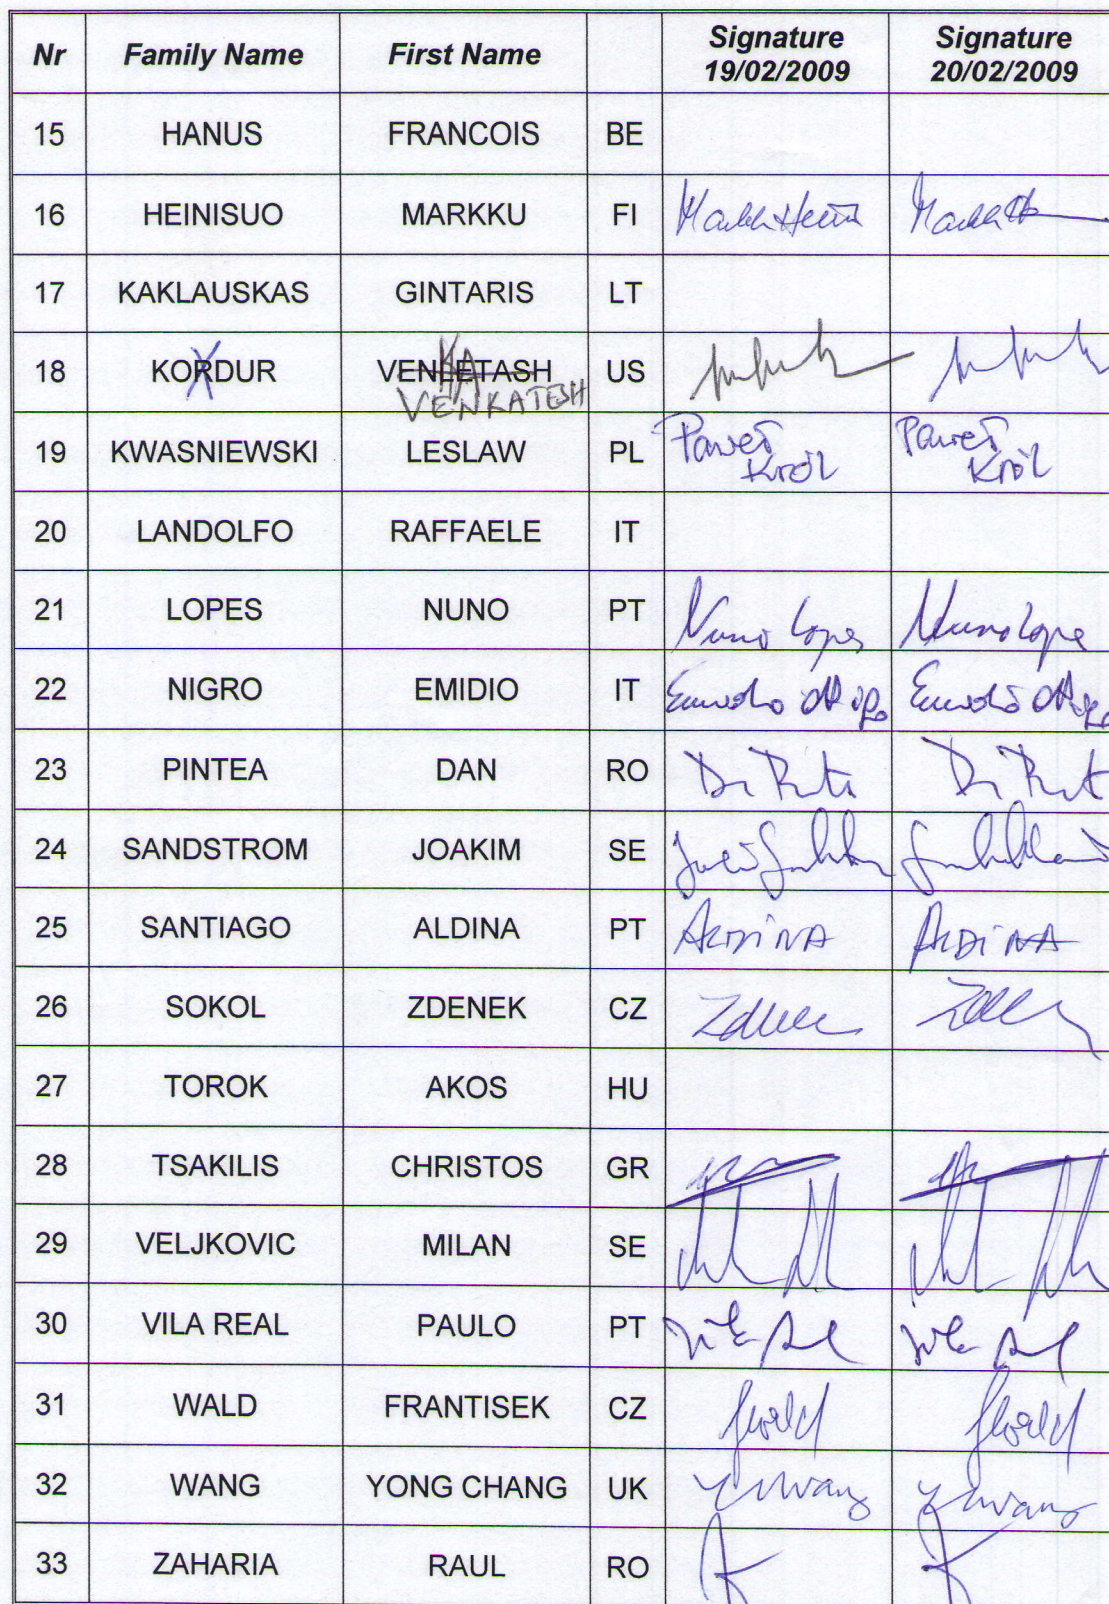 Nr Family Name First Name Signature 19/02/2009 Signature 20/02/2009
15 HANUS FRANCOIS BE
16 HEINISUO MARKKU FI
17 KAKLAUSKAS GINTARIS LT
18 KORDUR VENLETASH US
KA
VENKATESH
19 KWASNIEWSKI LESLAW PL Paweł Król Paweł Król
20 LANDOLFO RAFFAELE IT
21 LOPES NUNO PT Nuno Lopes Nuno Lope
22 NIGRO EMIDIO IT
23 PINTEA DAN RO
24 SANDSTROM JOAKIM SE
25 SANTIAGO ALDINA PT ALDINA ALDINA
26 SOKOL ZDENEK CZ
27 TOROK AKOS HU
28 TSAKILIS CHRISTOS GR
29 VELJKOVIC MILAN SE
30 VILA REAL PAULO PT
31 WALD FRANTISEK CZ
32 WANG YONG CHANG UK
33 ZAHARIA RAUL RO